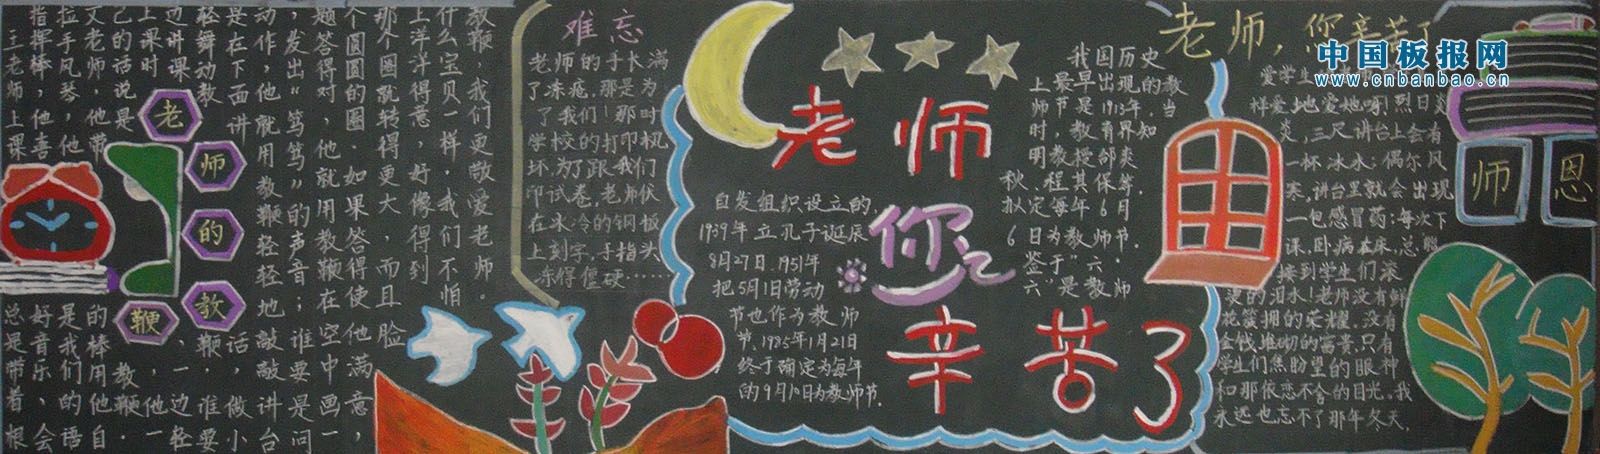 老师的教鞭
三老师上课总是带着、根
指挥棒，他喜好音乐、会
拉手风琴，他是我们的语
文老师，他带的棒用他自
己的话说是教鞭。
上课时，他一
边讲课，一边轻
轻舞动教鞭，谁要
是在下面讲话，做小
动作，他就用教鞭轻轻地敲敲讲台
，发出“笃笃”的声音；谁要是问
题答得对，他就用教鞭在空中画一
个圆圆的圈。如果答得使他满意，
那个圈就转得更大，而且脸
上洋洋得意，好像得到
什么宝贝一样，我们不怕
教鞭，我们更敬爱老师。
难忘
老师的手长满
了冻疮，那是为
了我们！那时
学校的打印机
坏，为了跟我们
印试卷，老师伏
在冰冷的钢板
上刻字，手指头
冻得僵硬……
老师
您
辛苦了
我国历史
上最早出现的教
师节是1913年，当
时，教育界知
明教授邰爽
秋、程其保等，
拟定每年6月
6日为教师节，
鉴于“六·
六”是教师
自发组织设立的，
1939年立孔子诞辰
8月27日，1951年
把5月1日劳动
节也作为教师
节，1985年1月21日
终于确定为每年
的9月10日为教师节。
老师，您辛苦了
中国板报网
www.cnbanbao.cn
爱学生
样爱地爱她呀！烈日炎
炎，三尺讲台上会有
一杯冰水；偶尔风
寒，讲台里就会出现
一包感冒药；每次下
课，卧病在床，总
接到学生们滚
滚的泪水！老师没有鲜
花簇拥的荣耀，没有
金钱堆砌的富贵，只有
学生们焦盼望的眼神
和那依恋不舍的目光。我
永远也忘不了那年冬天，
师恩